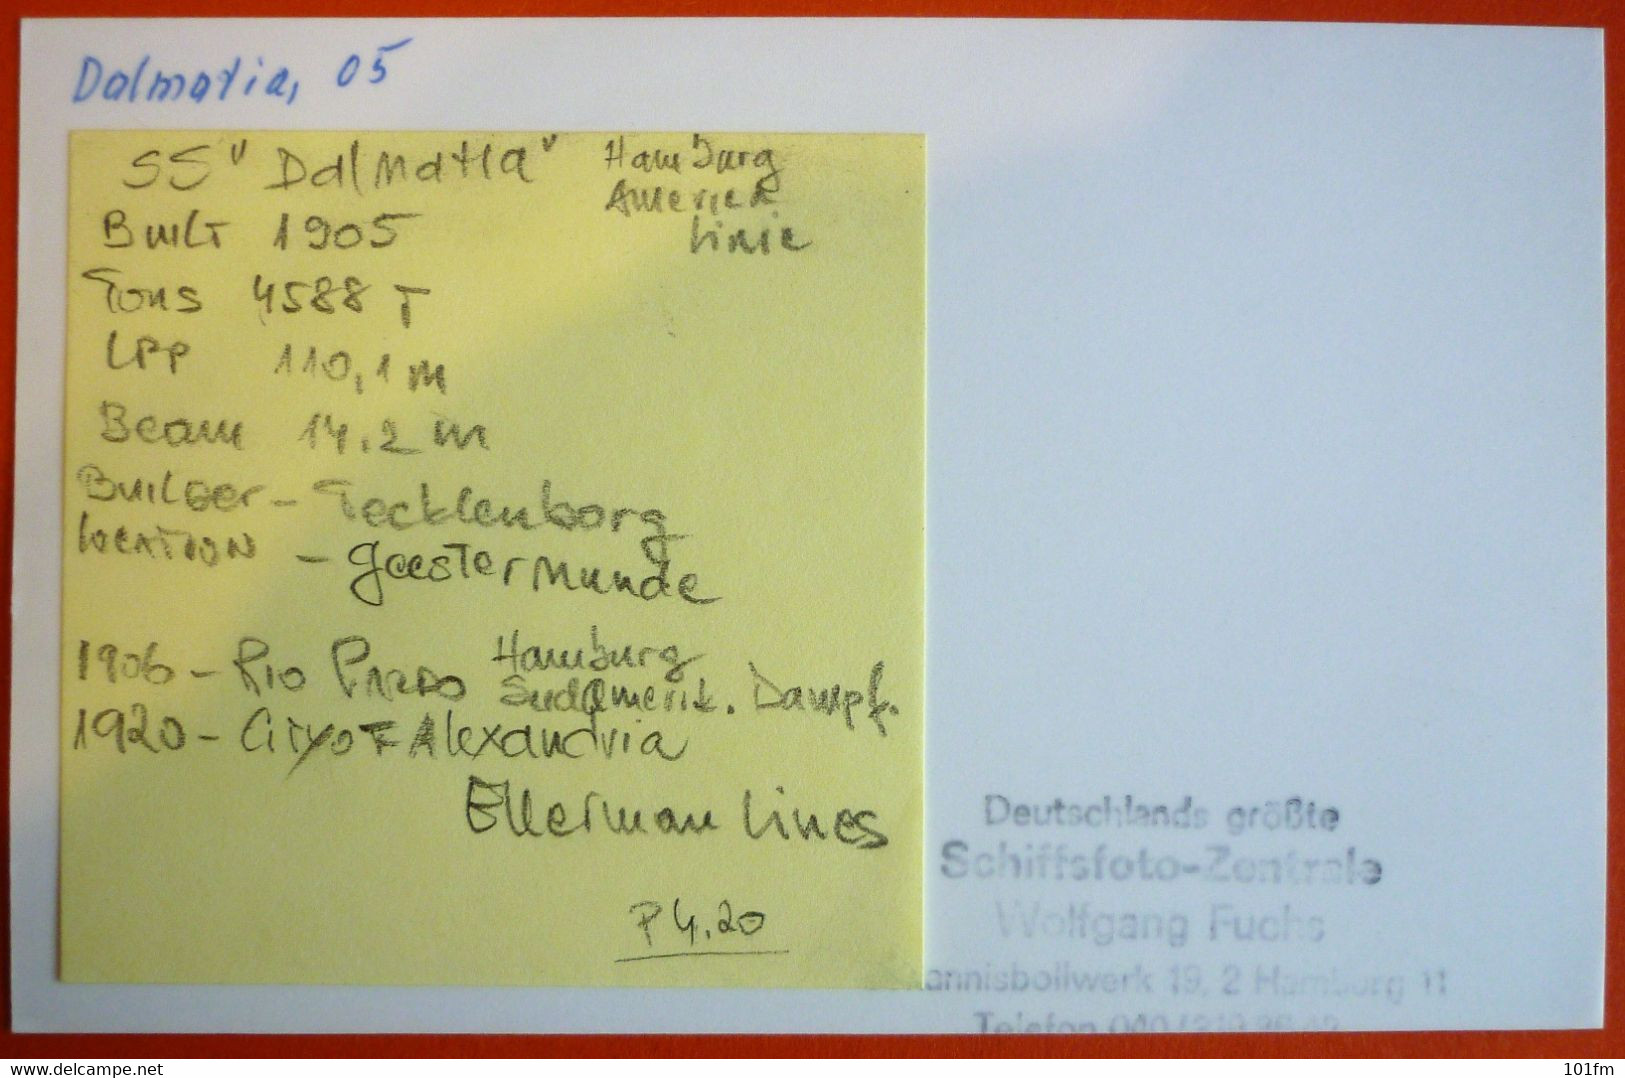 Dalmatia, 05
SS "Dalmatia" Hamburg
Amerika
Linie
Built 1905
Tons 4588 T
LPP 110,1 m
Beam 14.2 m
Builder - Tecklenborg
Location - Geestermunde
1906 - Rio Pardo Hamburg
Südamerik. Dampf.
1920 - City of Alexandria
Ellerman Lines
P 4.20
Deutschlands größte
Schiffsfoto-Zentrale
Wolfgang Fuchs
annisbollwerk 19, 2 Hamburg 11
Telefon 040/319
www.delcampe.net
101fm